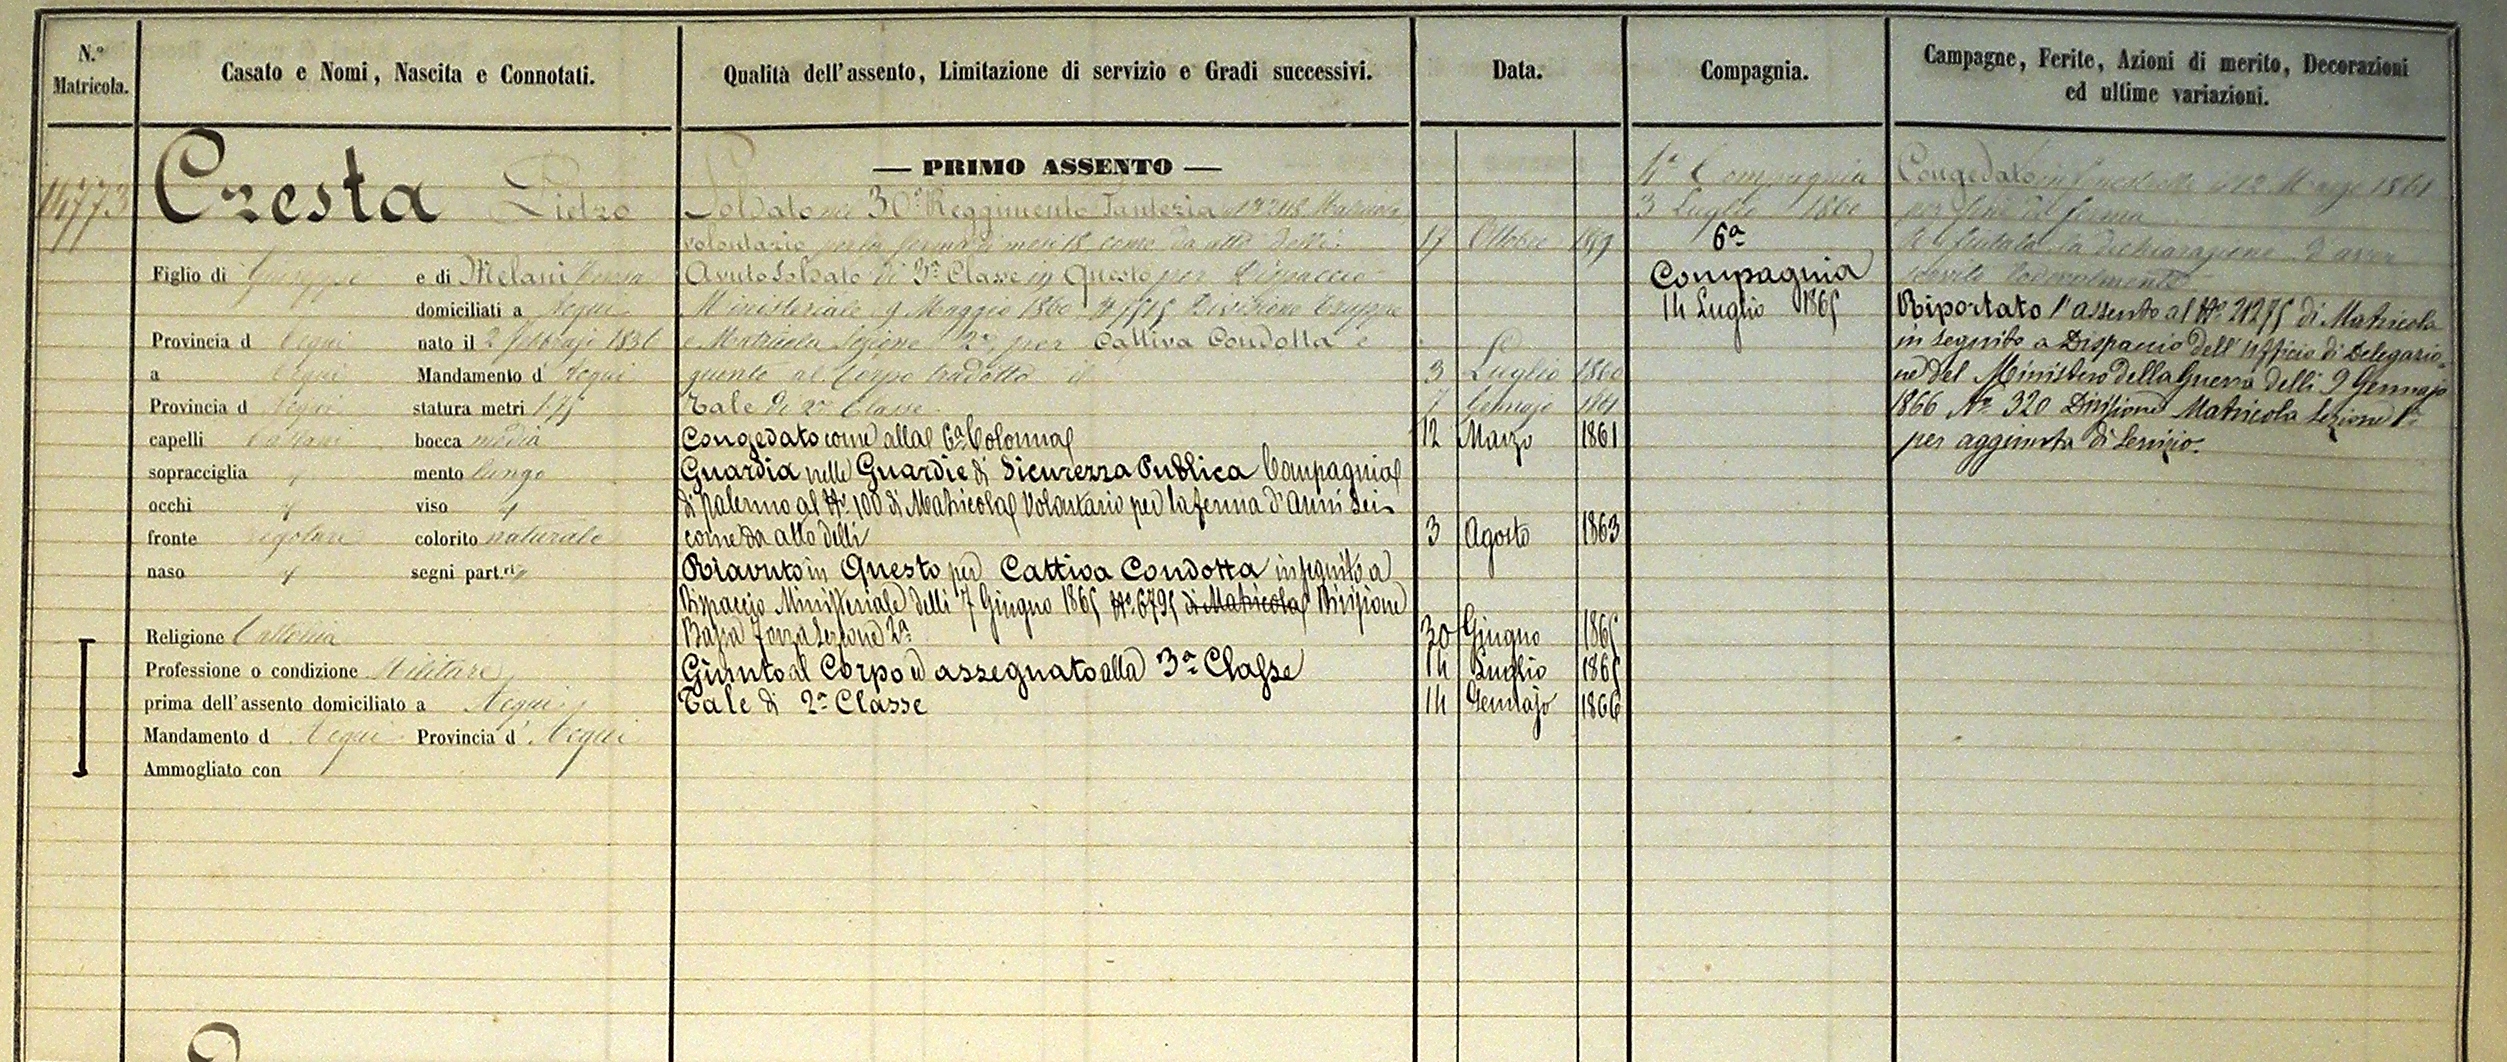 N.º
Matricola.
Casato e Nomi, Nascita e Connotati.
Qualità dell'assento, Limitazione di servizio e Gradi successivi.
Data.
Compagnia.
Campagne, Ferite, Azioni di merito, Decorazioni
ed ultime variazioni.
14773
Cresta Pietro
Figlio di Giuseppe e di Melani
domiciliati a Acqui
Provincia d Acqui nato il 2 febbrajo 1836
a Acqui Mandamento d' Acqui
Provincia d Acqui statura metri 1.75
capelli castani bocca media
sopracciglia mento lungo
occhi viso
fronte regolare colorito naturale
naso segni part.ri
Religione Cattolica
Professione o condizione Militare
prima dell'assento domiciliato a Acqui
Mandamento d' Acqui Provincia d' Acqui
Ammogliato con
— PRIMO ASSENTO —
Soldato nel 30º Reggimento Fanteria Matricola
volontario per la ferma di mesi 18 come da atto delli 17 Ottobre 1859
Avuto Soldato di 3ª Classe in Questo per Dispaccio
Ministeriale 9 Maggio 1860 Divisione Truppe
e Matricola Sezione 2ª per Cattiva Condotta e
giunto al Corpo tradotto il 3 Luglio 1860
Tale di 2ª Classe 7 Gennajo 1861
Congedato come alla 6ª Colonna 12 Marzo 1861
Guardia nelle Guardie di Sicurezza Pubblica Compagnia
di Palermo al Nº 100 di Matricola Volontario per la ferma d'anni Sei
come da atto delli 3 Agosto 1863
Riavuto in Questo per Cattiva Condotta in seguito a
Dispaccio Ministeriale delli 7 Giugno 1865 Nº 6795 di Matricola Divisione
Bassa Forza Sezione 2ª 30 Giugno 1865
Giunto al Corpo ed assegnato alla 3ª Classe 14 Luglio 1865
Tale di 2ª Classe 14 Gennajo 1866
4ª Compagnia
3 Luglio 1860
6ª
Compagnia
14 Luglio 1865
Congedato in li 12 Marzo 1861
per fine di ferma
la dichiarazione d'aver
servito lodevolmente
Riportato l'assento al Nº 21275 di Matricola
in seguito a Dispaccio dell'Ufficio di Delegazio-
ne del Ministero della Guerra delli 9 Gennajo
1866 Nº 320 Divisione Matricola Sezione 1ª
per aggiunta di Servizio.